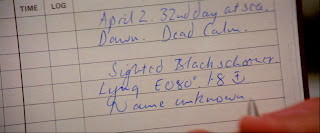 TIME LOG
April 2. 32nd day at sea.
Dawn. Dead Calm.
Sighted Black schooner
Lying E080°
Name unknown